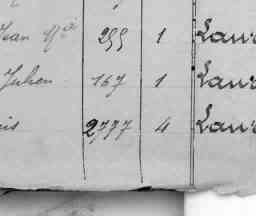 Jean Mᵃ 299 1 Laur
Julien 167 1 Laur
is 2797 4 Laur